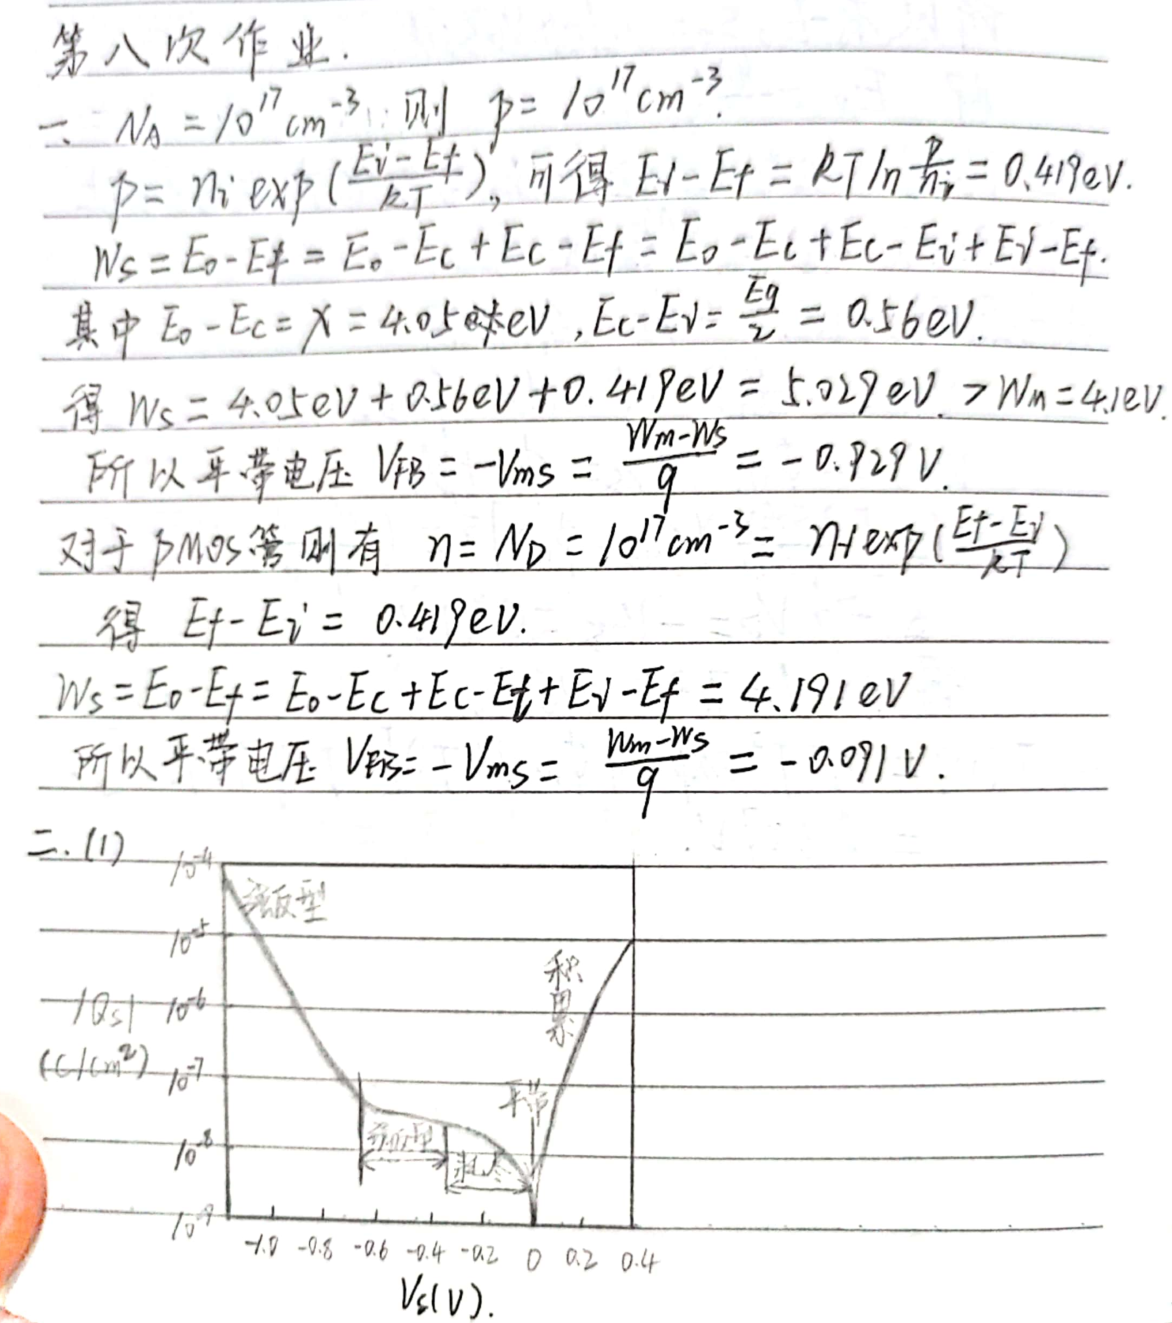 第八次作业.
一、 NA = 10^17 cm^-3, 则 p = 10^17 cm^-3.
p = ni exp(\frac{Ei-Ef}{kT}), 可得 Ei-Ef = kT ln \frac{p}{ni} = 0.419eV.
Ws = E0-Ef = E0-Ec+Ec-Ef = E0-Ec+Ec-Ei+Ei-Ef.
其中 E0-Ec = χ = 4.05 eV, Ec-Ei = \frac{Eg}{2} = 0.56eV.
得 Ws = 4.05eV+0.56eV+0.419eV = 5.029eV. > Wm = 4.1eV.
所以平带电压 VFB = -Vms = \frac{Wm-Ws}{q} = -0.929V.
对于pMOS管则有 n = ND = 10^17 cm^-3 = ni exp(\frac{Ef-Ei}{kT})
得 Ef-Ei = 0.419eV.
Ws = E0-Ef = E0-Ec+Ec-Ei+Ei-Ef = 4.191eV
所以平带电压 VFB = -Vms = \frac{Wm-Ws}{q} = -0.091V.
二.(1)
10^-4
强反型
10^-5
积累
|Qs| 10^-6
(C/cm²) 10^-7
平带
弱反型
10^-8
耗尽
10^-9
-1.0 -0.8 -0.6 -0.4 -0.2 0 0.2 0.4
Vs(V).